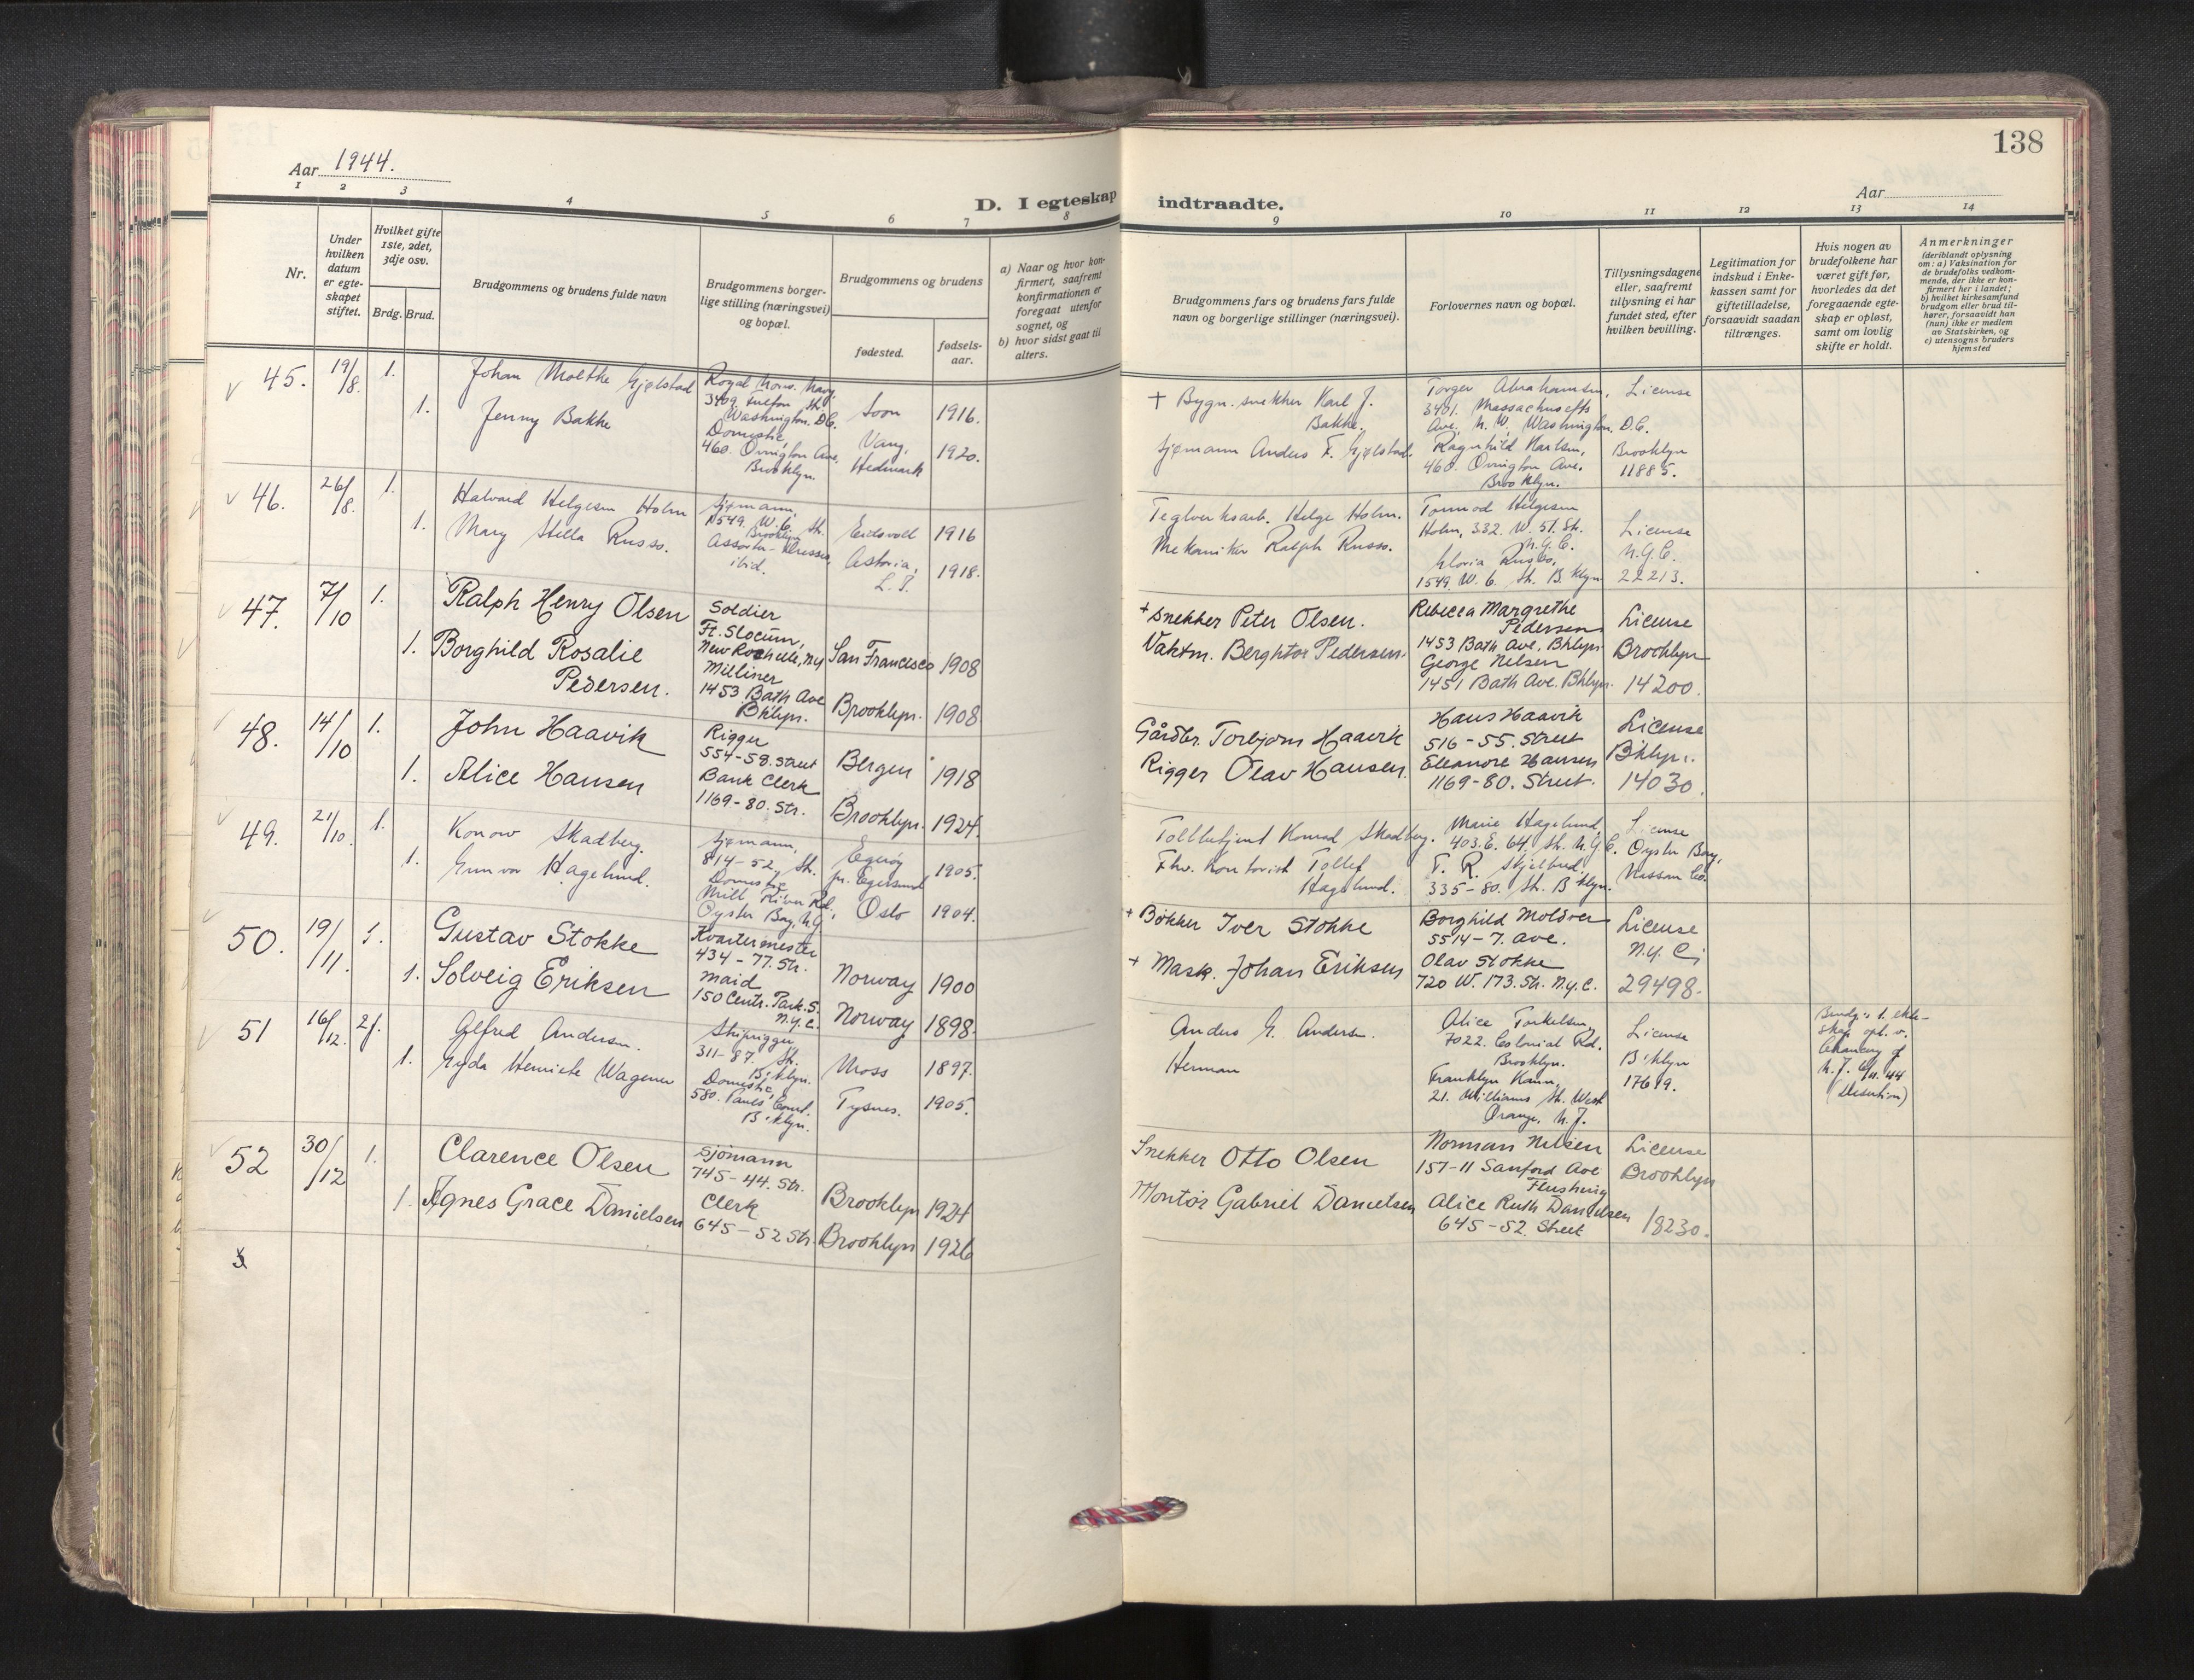 138
Aar 1944.
Aar
D. I egteskap indtraadte.
1 2 3 4 5 6 7 8 9 10 11 12 13 14
Nr.
Under hvilken datum er egteskapet stiftet.
Hvilket gifte 1ste, 2det, 3dje osv.
Brdg. Brud.
Brudgommens og brudens fulde navn
Brudgommens borgerlige stilling (næringsvei) og bopæl.
Brudgommens og brudens
fødested.
fødselsaar.
a) Naar og hvor konfirmert, saafremt konfirmationen er foregaat utenfor sognet, og
b) hvor sidst gaat til alters.
Brudgommens fars og brudens fars fulde navn og borgerlige stillinger (næringsvei).
Forlovernes navn og bopæl.
Tillysningsdagene eller, saafremt tillysning ei har fundet sted, efter hvilken bevilling.
Legitimation for indskud i Enkekassen samt for giftetilladelse, forsaavidt saadan tiltrænges.
Hvis nogen av brudefolkene har været gift før, hvorledes da det foregaaende egteskap er opløst, samt om lovlig skifte er holdt.
Anmerkninger (deriblandt oplysning om: a) Vaksination for de brudefolks vedkommende, der ikke er konfirmert her i landet; b) hvilket kirkesamfund brudgom eller brud tilhører, forsaavidt han (hun) ikke er medlem av Statskirken, og c) utensogns bruders hjemsted
45. 19/8. 1.
Johan Moltke Gjølstad
1. Jenny Bakke
Royal Norw. Navy,
3409 Fulton St.
Washington. D.C.
Domestic,
460. Ovington Ave,
Brooklyn.
Soon 1916.
Vang, Hedmark 1920.
+ Bygn. snekker Karl J.
Bakke.
sjømann Anders F. Gjølstad.
Torger Abrahamsen,
3401. Massachusetts
Ave, N.W, Washington. D.C.
Ragnhild Karlsen,
460. Ovington Ave.
Brooklyn.
License
Brooklyn
11885.
46. 26/8. 1.
Halvard Helgesen Holm
1. Mary Stella Russo.
sjømann,
1549. W. 6. St.
Brooklyn
ibid.
Eidsvoll 1916
Astoria, L. I. 1918.
Teglverksarb. Helge Holm.
Mekaniker Ralph Russo.
Tormod Helgesen
Holm, 332. W. 51. St.
N.Y.C.
Gloria Russo,
1549. W. 6. St. B'klyn
License
N.Y.C.
22213.
47. 7/10 1.
Ralph Henry Olsen
1. Borghild Rosalie
Pedersen.
Soldier
Ft. Slocum,
New Rochelle, N.Y
Milliner
1453 Bath Ave
Bklyn.
San Francisco 1908
Brooklyn. 1908
+ Snekker Peter Olsen.
Vaktm. Berghtor Pedersen.
Rebecca Margrethe
Pedersen
1453 Bath Ave. Bklyn
George Nelsen
1451 Bath Ave. Bklyn.
License
Brooklyn
14200.
48. 14/10 1.
John Haavik
1. Alice Hansen
Rigger
554-58. Street
Bank Clerk
1169-80. Str.
Bergen 1918
Brooklyn. 1924
Gårdbr. Torbjørn Haavik
Rigger Olav Hansen.
Hans Haavik
516-55. Street
Eleanore Hansen
1169-80. Street.
License
B'klyn.
14030.
49. 21/10. 1.
Konow Skadberg.
1. Gunvor Hagelund.
sjømann,
814-52. St.
Domestic
Mill River Rd,
Oyster Bay, N.Y
Egerøy
pr. Egersund 1905.
Oslo 1904.
Tollbetjent Konrad Skadberg.
Fhv. kontorist Tollef
Hagelund.
Marie Hagelund,
403. E. 64. St. N.Y.C.
T. R. Skjelbred,
335-80. St. B'klyn.
License
Oyster Bay,
Nassau Co.
50. 19/11. 1.
Gustav Stokke
1. Solveig Eriksen
Kvartermester
434-77. Str.
Maid
150 Centr. Park S.
N.Y.C.
Norway 1900
Norway 1898.
+ Bøkker Iver Stokke
+ Mask. Johan Eriksen
Borghild Moldver
5514-7. Ave.
Olav Stokke
720 W. 173. Str. N.Y.C.
License
N.Y.C.
29498.
51 16/12. 2.
Alfred Andersen.
1. Gyda Henriete Wagener
Skiprigger
311-87. St.
B'klyn.
Domestic,
580.
B'klyn.
Moss 1897.
Tysnes. 1905.
Anders G. Andersen.
Herman
Alice Torkelsen,
7022. Colonial Rd.
Brooklyn.
Franklyn Kann,
21. Williams St. West
Orange, N.J.
License
B'klyn
17619.
Brudg.s 1. ekte-
skap opl. v.
Chancery of
N.J. 44
(Desertion)
52 30/12 1.
Clarence Olsen
1. Agnes Grace Danielsen
Sjømann
745-44. Str.
Clerk
645-52 Str.
Brooklyn 1924
Brooklyn 1926
Snekker Otto Olsen
Montør Gabriel Danielsen
Norman Nilsen
157-11 Sanford Ave
Flushing
Alice Ruth Danielsen
645-52. Street
License
Brooklyn
18230.